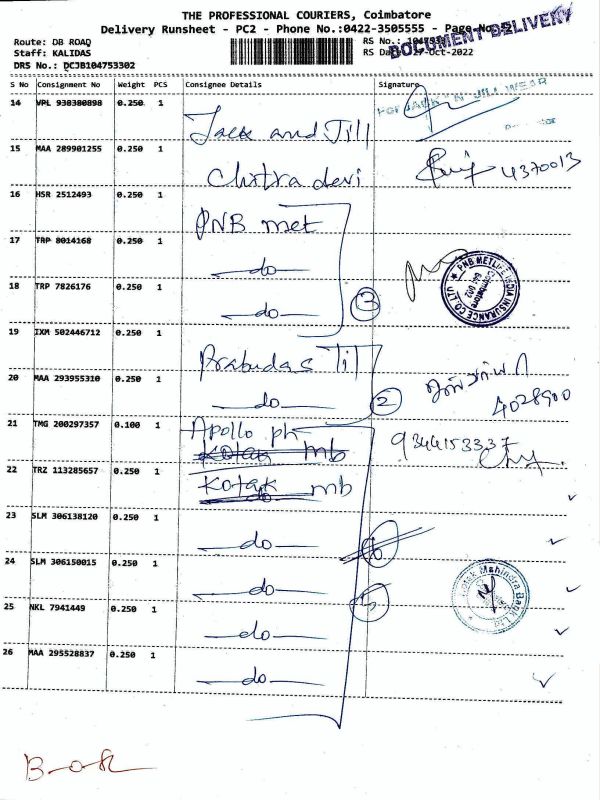 THE PROFESSIONAL COURIERS, Coimbatore
Delivery Runsheet - PC2 - Phone No.:0422-3505555 - Page No
DOCUMENT DELIVERY
Route: DB ROAD
RS No.:
Staff: KALIDAS
RS Da -Oct-2022
DRS No.: DCJB104753302
S No Consignment No Weight PCS Consignee Details Signature
14 VPL 938380898 0.250 1 Jack and Jill
For JACK 'N' JILL WEAR
15 MAA 289901255 0.250 1 Chitra devi 4370013
16 HSR 2512493 0.250 1 PNB met
17 TRP 8014168 0.250 1 do
18 TRP 7826176 0.250 1 do 3
PNB METLIFE INDIA INSURANCE CO.LTD
Coimbatore
641 002
19 IXM 502446712 0.250 1 Prabudas Til
20 MAA 293955310 0.250 1 do 2
4028900
21 TMG 200297357 0.100 1 Apollo ph 9344153337
Kotak mb
22 TRZ 113285657 0.250 1 Kotak mb
do
23 SLM 306138120 0.250 1 do
24 SLM 306150015 0.250 1 do 5
Kotak Mahindra Bank Ltd
25 NKL 7941449 0.250 1 do
26 MAA 295528837 0.250 1 do